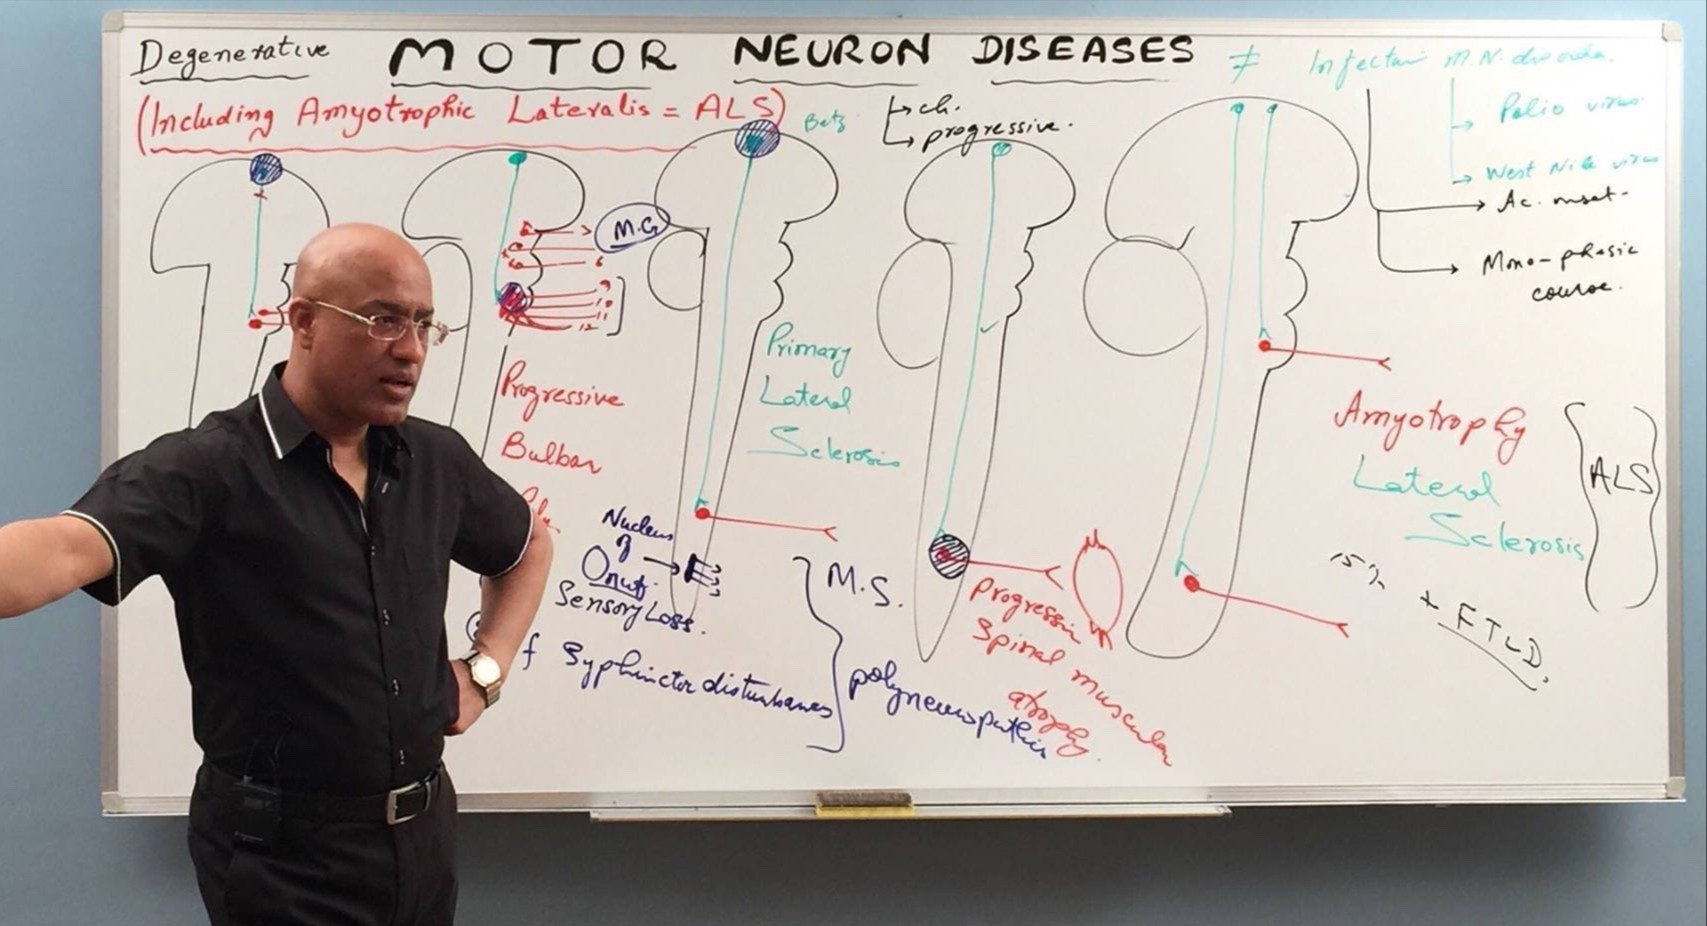 Degenerative MOTOR NEURON DISEASES ≠ Infectain M.N. disorder.
(Including Amyotrophic Lateralis = ALS)
Betz
ch.
progressive.
Polio virus
West Nile virus
Ac. onset-
Mono-phasic
course.
M.G
6
9
10
11
12
Progressive
Bulbar
Primary
Lateral
Sclerosis
Nucleus
of
Onuf.
Sensory Loss.
Syphinctor disturbances
M.S.
polyneuropathies
Progressive
Spinal muscular
atrophy.
Amyotrophy
Lateral
Sclerosis
ALS
15%
+ FTLD.